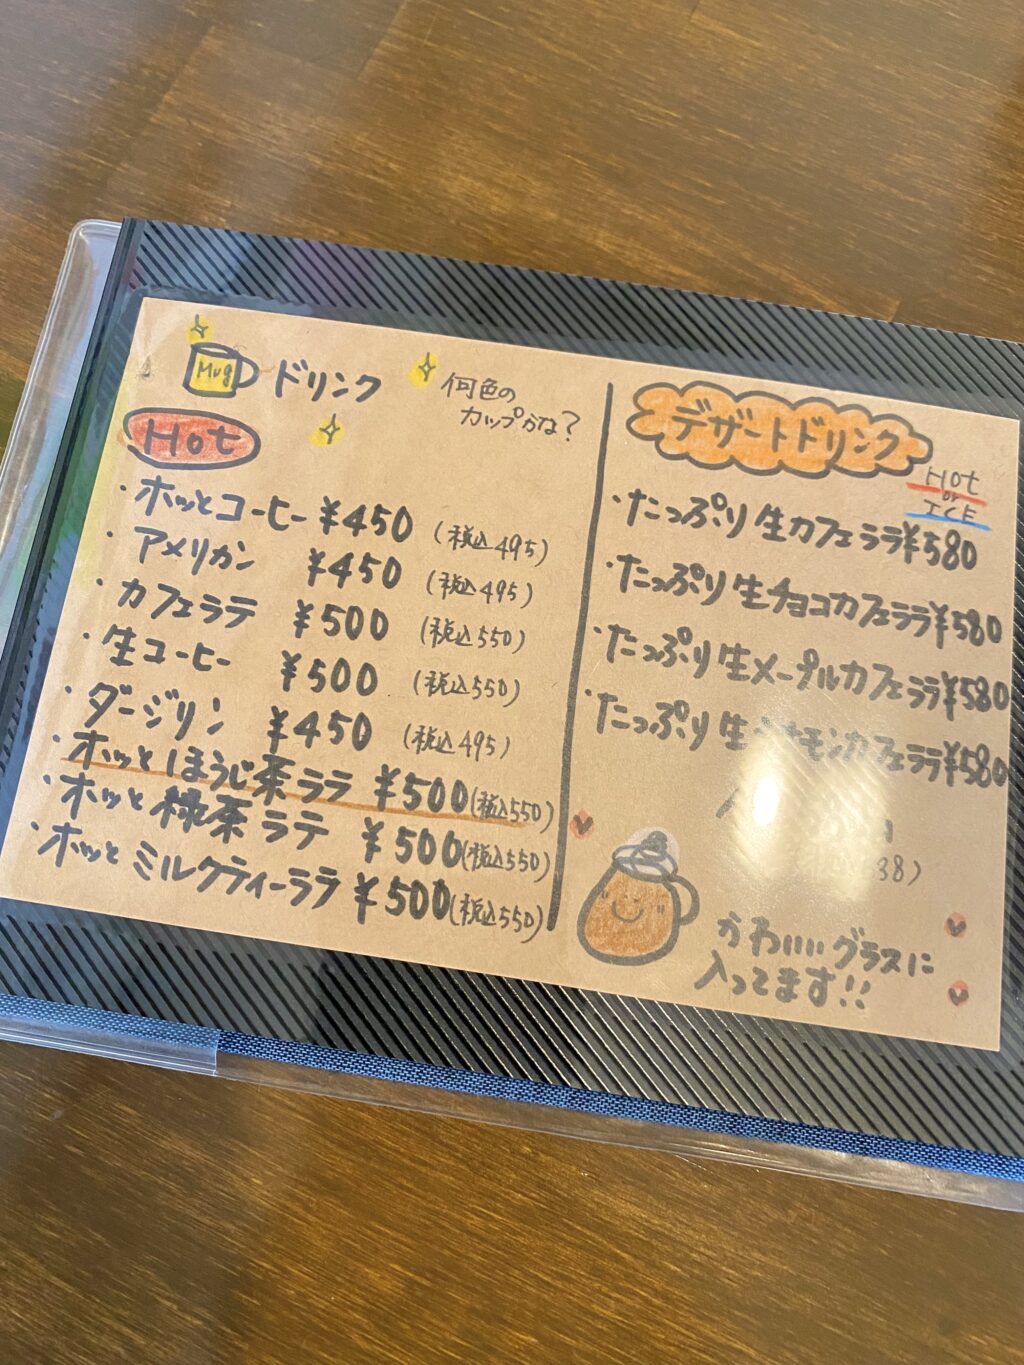 Mug
ドリンク
何色の
カップかな?
Hot
・ホッとコーヒー ¥450 (税込495)
・アメリカン ¥450 (税込495)
・カフェラテ ¥500 (税込550)
・生コーヒー ¥500 (税込550)
・ダージリン ¥450 (税込495)
・ホッとほうじ茶ララ ¥500(税込550)
・ホッと緑茶ラテ ¥500(税込550)
・ホッとミルクティーララ ¥500(税込550)
デザートドリンク
HOt
or
ICE
・たっぷり生カフェララ¥580
・たっぷり生チョコカフェララ¥580
・たっぷり生メープルカフェララ¥580
・たっぷり生 モンカフェララ¥580
38)
かわいいグラスに
入ってます!!